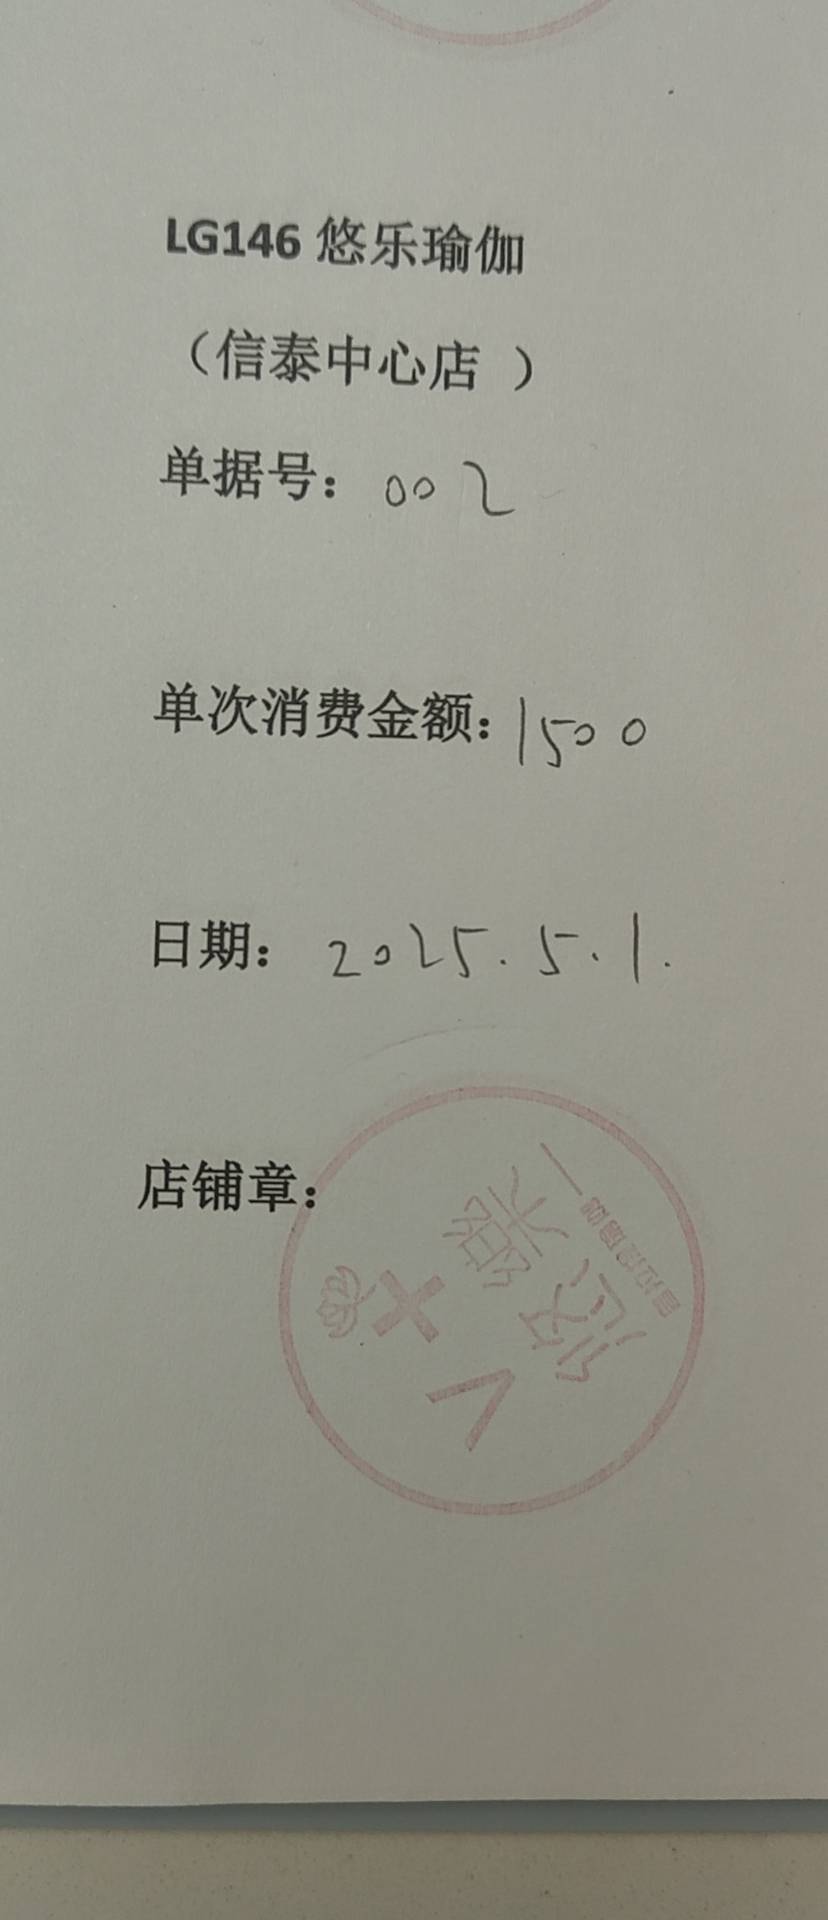 LG146 悠乐瑜伽
（信泰中心店 ）
单据号：002
单次消费金额：1500
日期：2025.5.1.
店铺章：